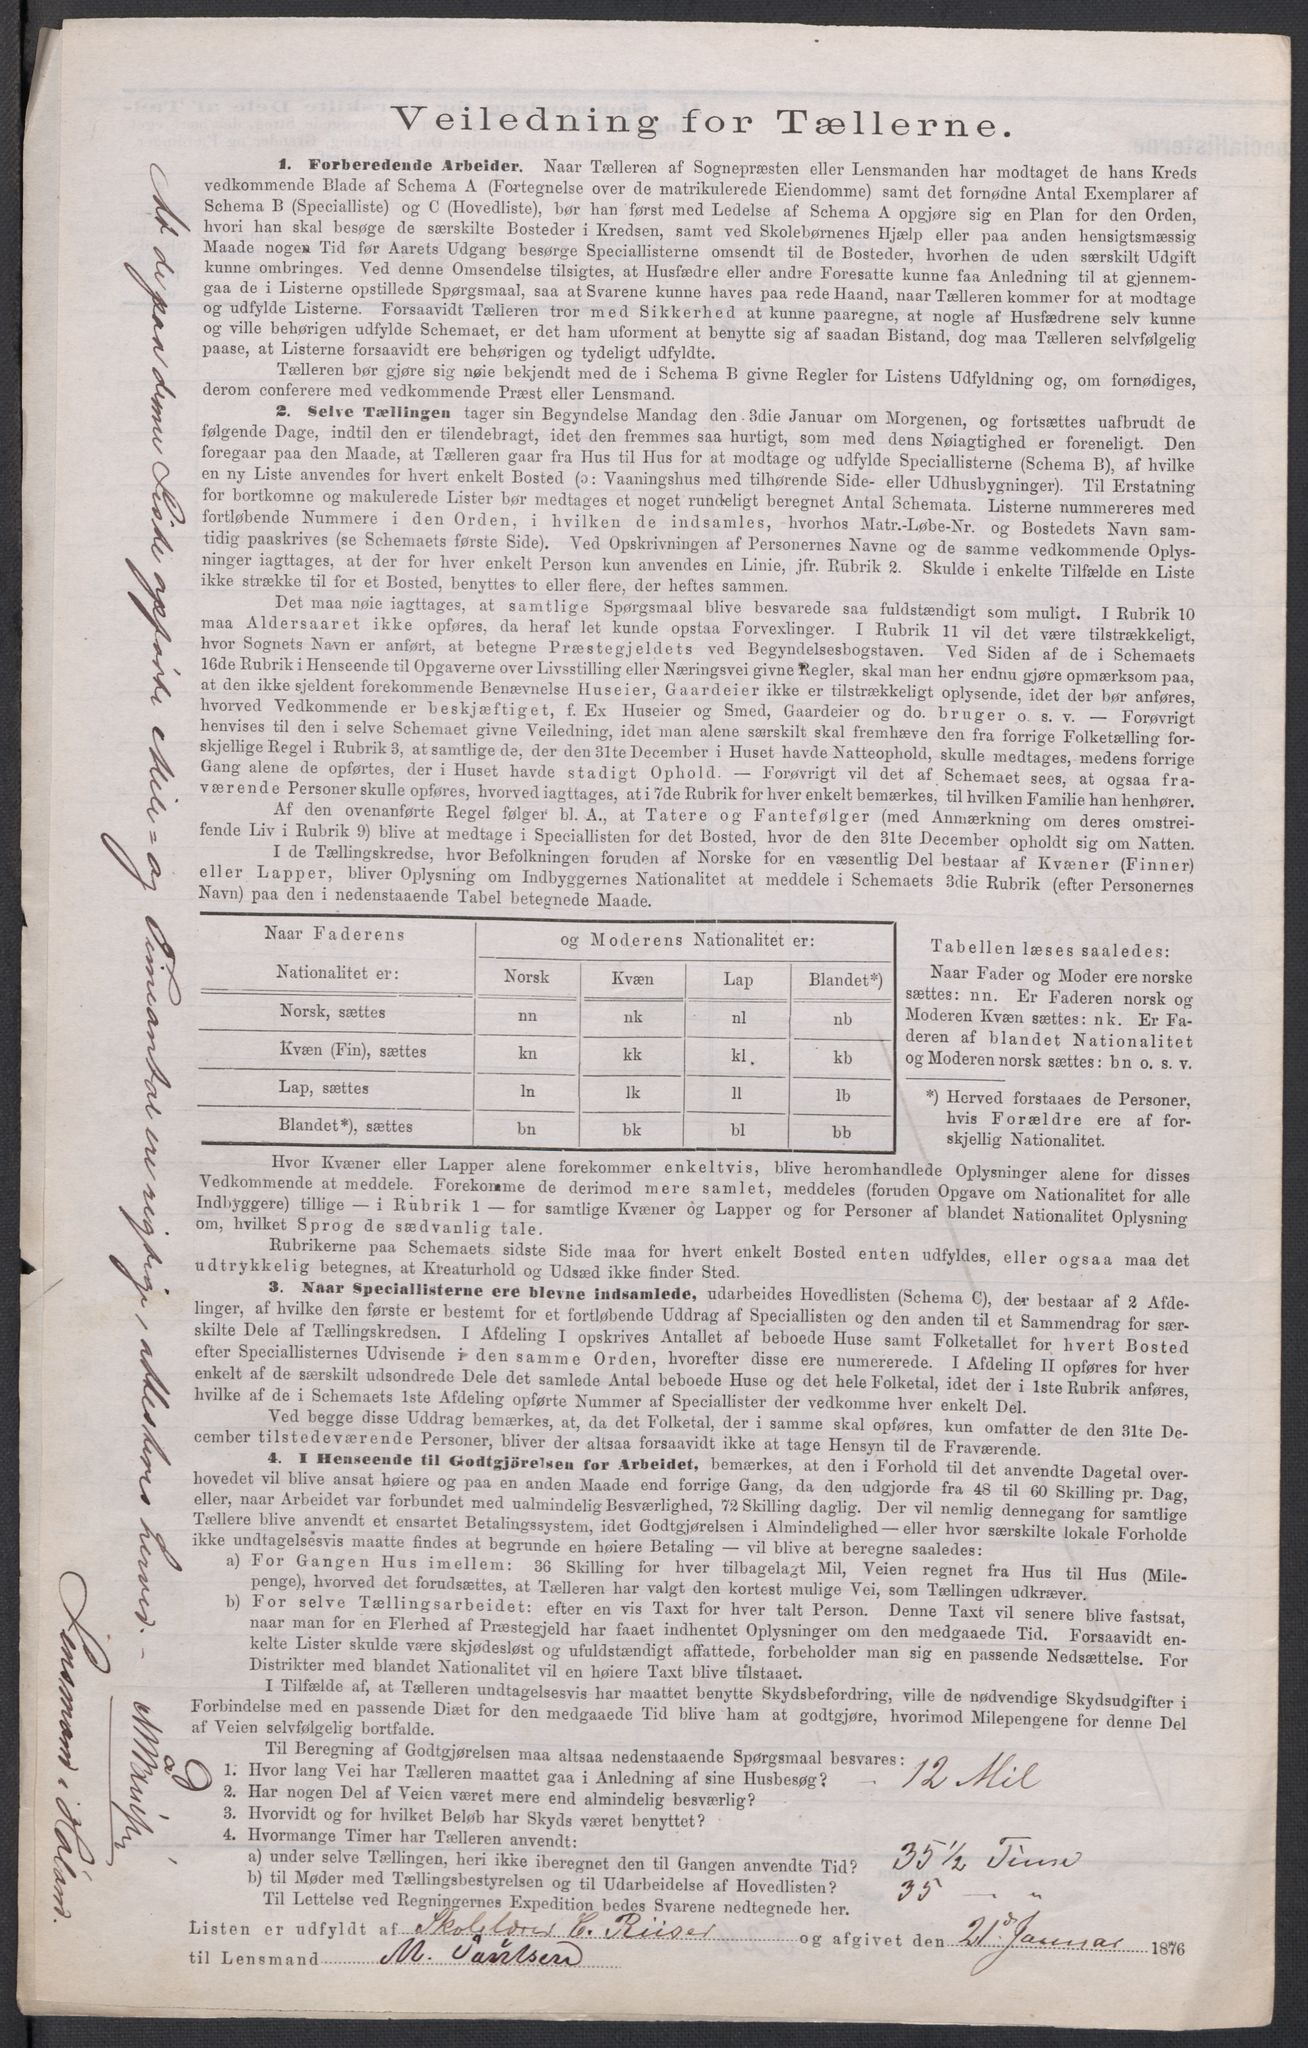 Veiledning for Tællerne.
1. Forberedende Arbeider. Naar Tælleren af Sognepræsten eller Lensmanden har modtaget de hans Kreds
vedkommende Blade af Schema A (Fortegnelse over de matrikulerede Eiendomme) samt det fornødne Antal Exemplarer af
Schema B (Specialliste) og C (Hovedliste), bør han først med Ledelse af Schema A opgjøre sig en Plan for den Orden,
hvori han skal besøge de særskilte Bosteder i Kredsen, samt ved Skolebørnenes Hjælp eller paa anden hensigtsmæssig
Maade nogen Tid før Aarets Udgang besørge Speciallisterne omsendt til de Bosteder, hvorhen de uden særskilt Udgift
kunne ombringes. Ved denne Omsendelse tilsigtes, at Husfædre eller andre Foresatte kunne faa Anledning til at gjennem-
gaa de i Listerne opstillede Spørgsmaal, saa at Svarene kunne haves paa rede Haand, naar Tælleren kommer for at modtage
og udfylde Listerne. Forsaavidt Tælleren tror med Sikkerhed at kunne paaregne, at nogle af Husfædrene selv kunne
og ville behørigen udfylde Schemaet, er det ham uforment at benytte sig af saadan Bistand, dog maa Tælleren selvfølgelig
paase, at Listerne forsaavidt ere behørigen og tydeligt udfyldte.
Tælleren bør gjøre sig nøie bekjendt med de i Schema B givne Regler for Listens Udfyldning og, om fornødiges,
derom conferere med vedkommende Præst eller Lensmand.
2. Selve Tællingen tager sin Begyndelse Mandag den 3die Januar om Morgenen, og fortsættes uafbrudt de
følgende Dage, indtil den er tilendebragt, idet den fremmes saa hurtigt, som med dens Nøiagtighed er foreneligt. Den
foregaar paa den Maade, at Tælleren gaar fra Hus til Hus for at modtage og udfylde Speciallisterne (Schema B), af hvilke
en ny Liste anvendes for hvert enkelt Bosted (ɔ: Vaaningshus med tilhørende Side- eller Udhusbygninger). Til Erstatning
for bortkomne og makulerede Lister bør medtages et noget rundeligt beregnet Antal Schemata. Listerne nummereres med
fortløbende Nummere i den Orden, i hvilken de indsamles, hvorhos Matr.-Løbe-Nr. og Bostedets Navn sam-
tidig paaskrives (se Schemaets første Side). Ved Opskrivningen af Personernes Navne og de samme vedkommende Oplys-
ninger iagttages, at der for hver enkelt Person kun anvendes en Linie, jfr. Rubrik 2. Skulde i enkelte Tilfælde en Liste
ikke strække til for et Bosted, benyttes to eller flere, der heftes sammen.
Det maa nøie iagttages, at samtlige Spørgsmaal blive besvarede saa fuldstændigt som muligt. I Rubrik 10
maa Aldersaaret ikke opføres, da heraf let kunde opstaa Forvexlinger. I Rubrik 11 vil det være tilstrækkeligt,
hvor Sognets Navn er anført, at betegne Præstegjeldets ved Begyndelsesbogstaven. Ved Siden af de i Schemaets
16de Rubrik i Henseende til Opgaverne over Livsstilling eller Næringsvei givne Regler, skal man her endnu gjøre opmærksom paa,
at den ikke sjeldent forekommende Benævnelse Huseier, Gaardeier ikke er tilstrækkeligt oplysende, idet der bør anføres,
hvorved Vedkommende er beskjæftiget, f. Ex Huseier og Smed, Gaardeier og do. bruger o. s. v. — Forøvrigt
henvises til den i selve Schemaet givne Veiledning, idet man alene særskilt skal fremhæve den fra forrige Folketælling for-
skjellige Regel i Rubrik 3, at samtlige de, der den 31te December i Huset havde Natteophold, skulle medtages, medens forrige
Gang alene de opførtes, der i Huset havde stadigt Ophold. — Forøvrigt vil det af Schemaet sees, at ogsaa fra-
værende Personer skulle opføres, hvorved iagttages, at i 7de Rubrik for hver enkelt bemærkes, til hvilken Familie han henhører.
Af den ovenanførte Regel følger bl. A., at Tatere og Fantefølger (med Anmærkning om deres omstrei-
fende Liv i Rubrik 9) blive at medtage i Speciallisten for det Bosted, hvor de den 31te December opholdt sig om Natten.
I de Tællingskredse, hvor Befolkningen foruden af Norske for en væsentlig Del bestaar af Kvæner (Finner)
eller Lapper, bliver Oplysning om Indbyggernes Nationalitet at meddele i Schemaets 3die Rubrik (efter Personernes
Navn) paa den i nedenstaaende Tabel betegnede Maade.
Naar Faderens Nationalitet er: og Moderens Nationalitet er:
Norsk Kvæn Lap Blandet*)
Norsk, sættes nn nk nl nb
Kvæn (Fin), sættes kn kk kl. kb
Lap, sættes ln lk ll lb
Blandet*), sættes bn bk bl bb
Tabellen læses saaledes:
Naar Fader og Moder ere norske
sættes: nn. Er Faderen norsk og
Moderen Kvæn sættes: nk. Er Fa-
deren af blandet Nationalitet
og Moderen norsk sættes: bn o. s. v.
*) Herved forstaaes de Personer,
hvis Forældre ere af for-
skjellig Nationalitet.
Hvor Kvæner eller Lapper alene forekommer enkeltvis, blive heromhandlede Oplysninger alene for disses
Vedkommende at meddele. Forekomme de derimod mere samlet, meddeles (foruden Opgave om Nationalitet for alle
Indbyggere) tillige — i Rubrik 1 — for samtlige Kvæner og Lapper og for Personer af blandet Nationalitet Oplysning
om, hvilket Sprog de sædvanlig tale.
Rubrikerne paa Schemaets sidste Side maa for hvert enkelt Bosted enten udfyldes, eller ogsaa maa det
udtrykkelig betegnes, at Kreaturhold og Udsæd ikke finder Sted.
3. Naar Speciallisterne ere blevne indsamlede, udarbeides Hovedlisten (Schema C), der bestaar af 2 Afde-
linger, af hvilke den første er bestemt for et fortløbende Uddrag af Speciallisten og den anden til et Sammendrag for sær-
skilte Dele af Tællingskredsen. I Afdeling I opskrives Antallet af beboede Huse samt Folketallet for hvert Bosted
efter Speciallisternes Udvisende i den samme Orden, hvorefter disse ere numererede. I Afdeling II opføres for hver
enkelt af de særskilt udsondrede Dele det samlede Antal beboede Huse og det hele Folketal, idet der i 1ste Rubrik anføres,
hvilke af de i Schemaets 1ste Afdeling opførte Nummer af Speciallister der vedkomme hver enkelt Del.
Ved begge disse Uddrag bemærkes, at, da det Folketal, der i samme skal opføres, kun omfatter de den 31te De-
cember tilstedeværende Personer, bliver der altsaa forsaavidt ikke at tage Hensyn til de Fraværende.
4. I Henseende til Godtgjörelsen for Arbeidet, bemærkes, at den i Forhold til det anvendte Dagetal over-
hovedet vil blive ansat høiere og paa en anden Maade end forrige Gang, da den udgjorde fra 48 til 60 Skilling pr. Dag,
eller, naar Arbeidet var forbundet med ualmindelig Besværlighed, 72 Skilling daglig. Der vil nemlig dennegang for samtlige
Tællere blive anvendt et ensartet Betalingssystem, idet Godtgjørelsen i Almindelighed — eller hvor særskilte lokale Forholde
ikke undtagelsesvis maatte findes at begrunde en høiere Betaling — vil blive at beregne saaledes:
a) For Gangen Hus imellem: 36 Skilling for hver tilbagelagt Mil, Veien regnet fra Hus til Hus (Mile-
penge), hvorved det forudsættes, at Tælleren har valgt den kortest mulige Vei, som Tællingen udkræver.
b) For selve Tællingsarbeidet: efter en vis Taxt for hver talt Person. Denne Taxt vil senere blive fastsat,
naar man for en Flerhed af Præstegjeld har faaet indhentet Oplysninger om den medgaaede Tid. Forsaavidt en-
kelte Lister skulde være skjødesløst og ufuldstændigt affattede, forbeholder man sig en passende Nedsættelse. For
Distrikter med blandet Nationalitet vil en høiere Taxt blive tilstaaet.
I Tilfælde af, at Tælleren undtagelsesvis har maattet benytte Skydsbefordring, ville de nødvendige Skydsudgifter i
Forbindelse med en passende Diæt for den medgaaede Tid blive ham at godtgjøre, hvorimod Milepengene for denne Del
af Veien selvfølgelig bortfalde.
Til Beregning af Godtgjørelsen maa altsaa nedenstaaende Spørgsmaal besvares:
1. Hvor lang Vei har Tælleren maattet gaa i Anledning af sine Husbesøg? 12 Mil
2. Har nogen Del af Veien været mere end almindelig besværlig?
3. Hvorvidt og for hvilket Beløb har Skyds været benyttet?
4. Hvormange Timer har Tælleren anvendt:
a) under selve Tællingen, heri ikke iberegnet den til Gangen anvendte Tid? 35 1/2 Time
b) til Møder med Tællingsbestyrelsen og til Udarbeidelse af Hovedlisten? 35 — "
Til Lettelse ved Regningernes Expedition bedes Svarene nedtegnede her.
Listen er udfyldt af Skolelærer C. Riiser og afgivet den 21d Januar 1876
til Lensmand M. Paulsen
At de paa denne Liste opførte Mile- og Timeantal ere rigtige, attesteres herved. —
Lensmand i Høland.